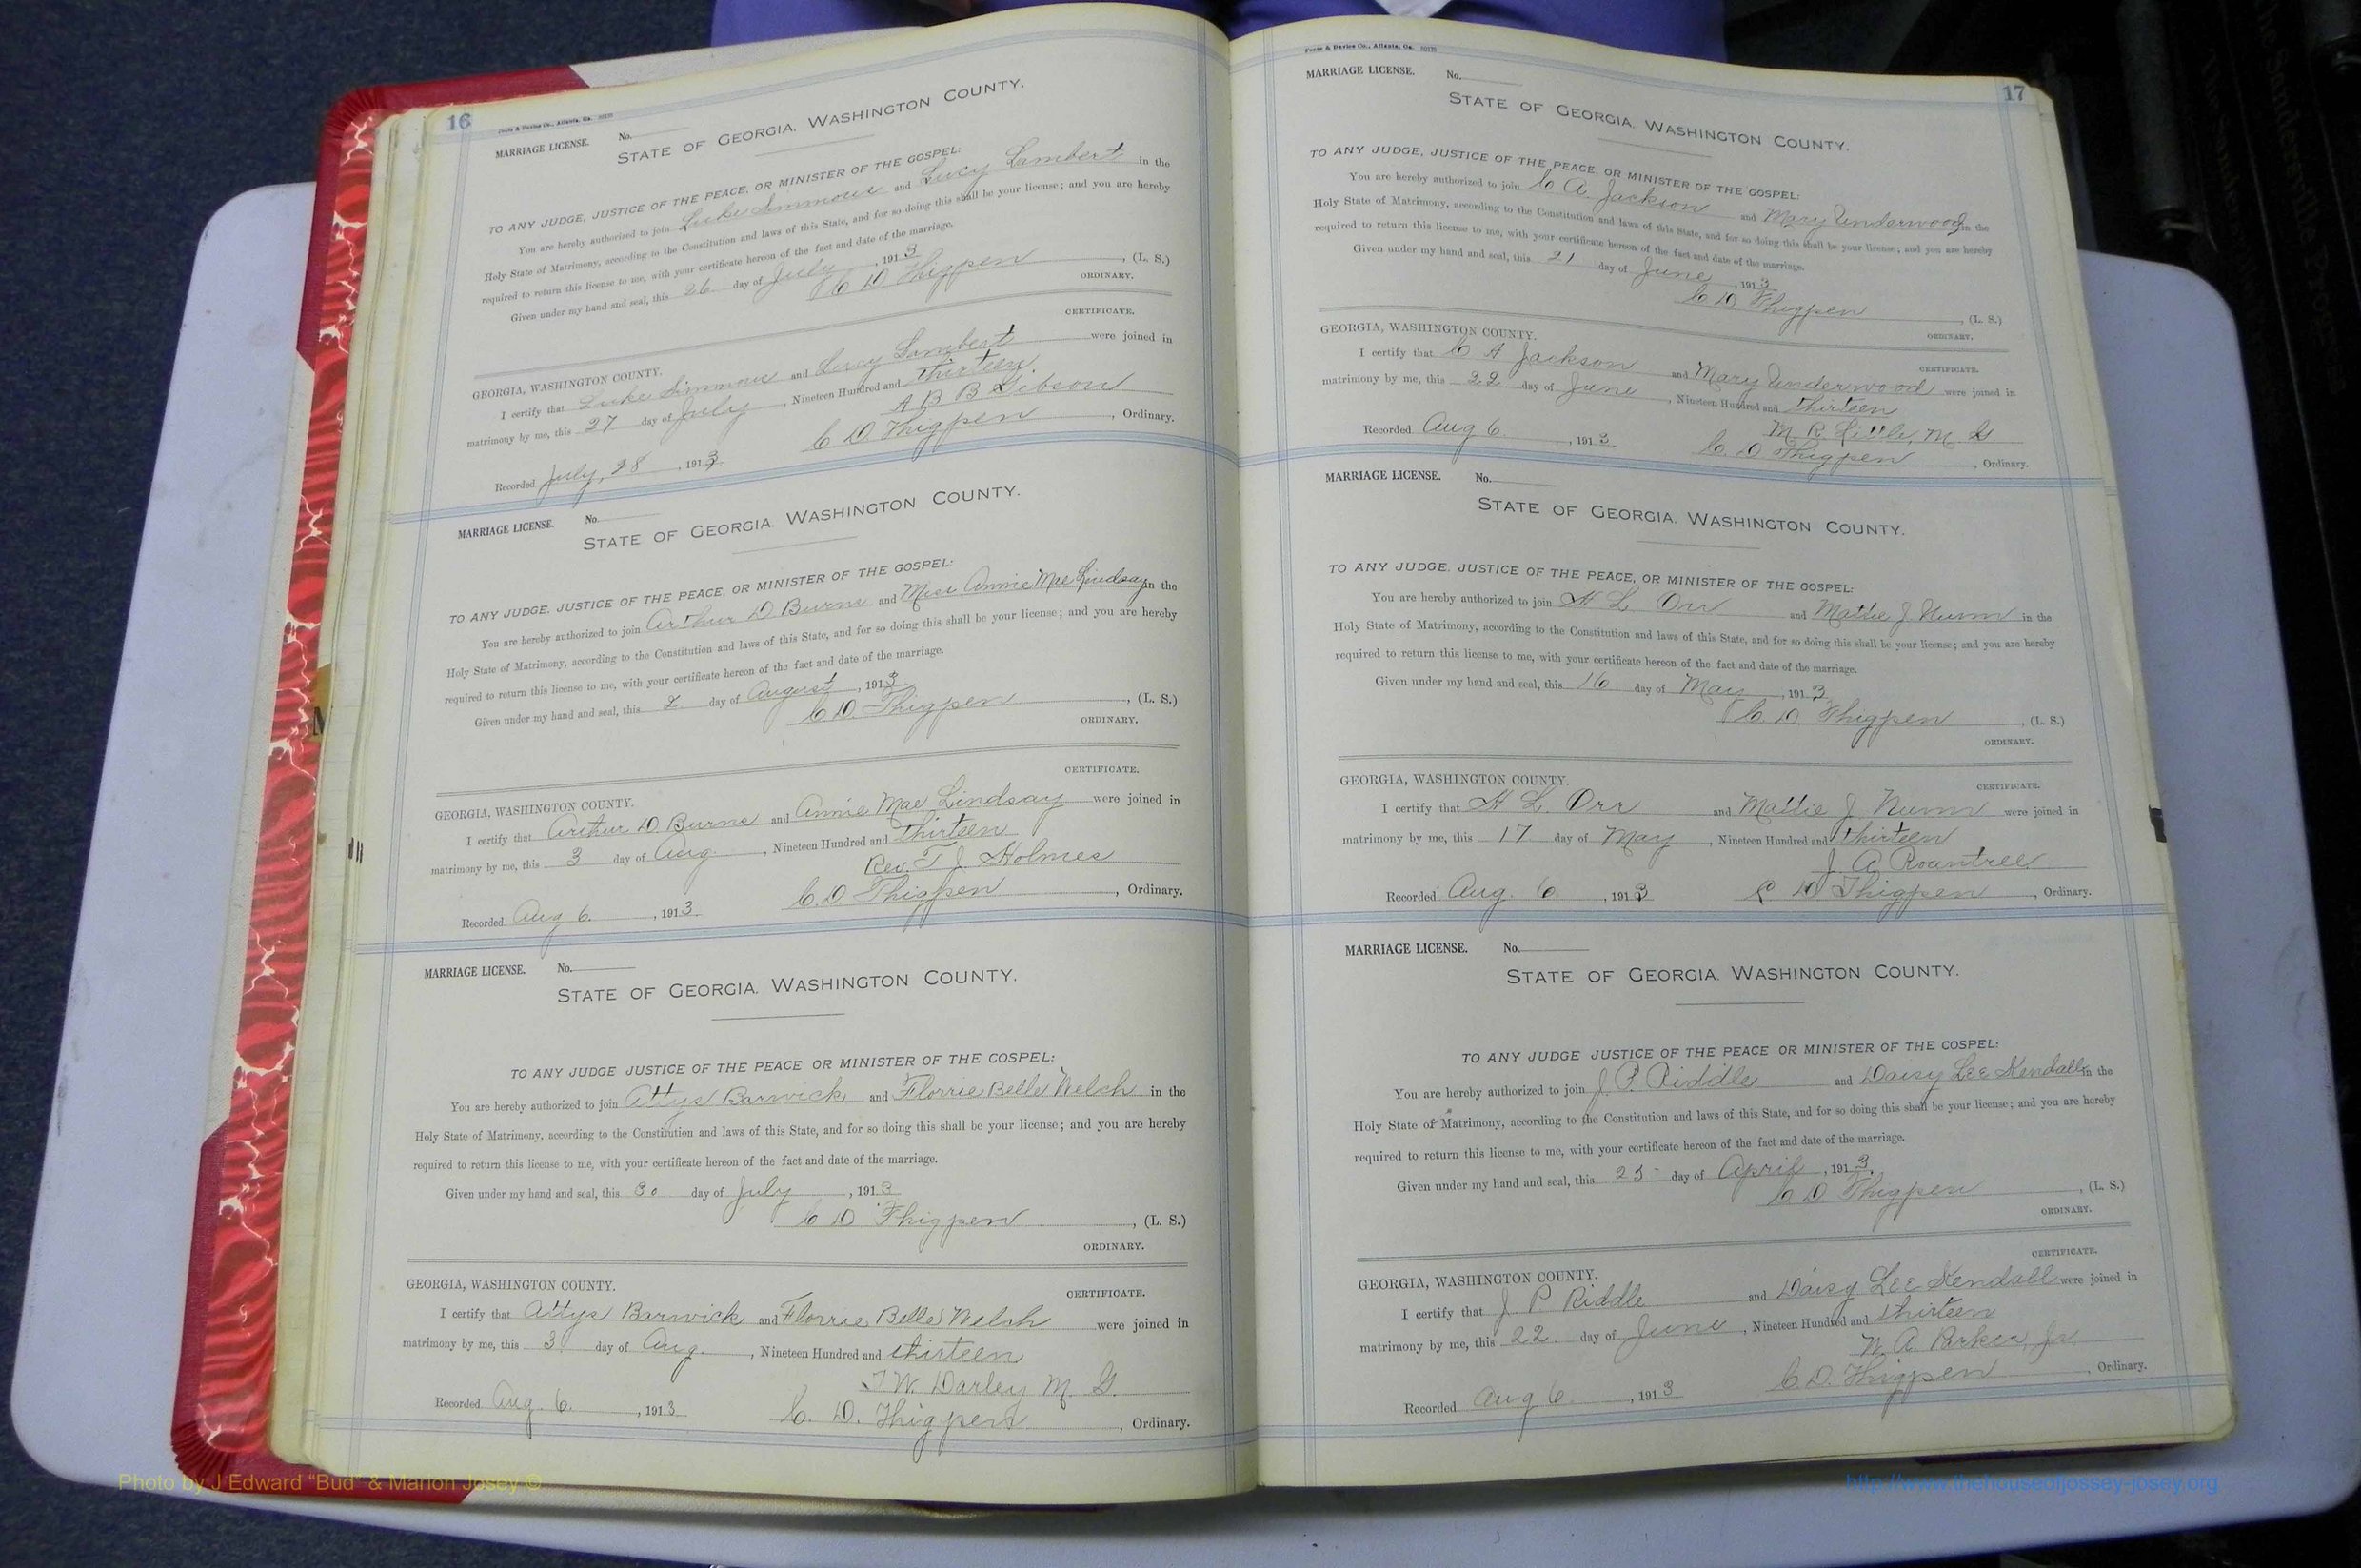 16
Foote & Davies Co., Atlanta, Ga.
MARRIAGE LICENSE. No.
STATE OF GEORGIA, WASHINGTON COUNTY.
TO ANY JUDGE, JUSTICE OF THE PEACE, OR MINISTER OF THE GOSPEL:
You are hereby authorized to join Luke Simmons and Lucy Lambert in the
Holy State of Matrimony, according to the Constitution and laws of this State, and for so doing this shall be your license; and you are hereby
required to return this license to me, with your certificate hereon of the fact and date of the marriage.
Given under my hand and seal, this 26 day of July, 1913
C D Thigpen, (L. S.)
ORDINARY.
CERTIFICATE.
GEORGIA, WASHINGTON COUNTY.
I certify that Luke Simmons and Lucy Lambert were joined in
matrimony by me, this 27 day of July, Nineteen Hundred and thirteen
A B B Gibson
Recorded July, 28, 1913 C D Thigpen, Ordinary.
MARRIAGE LICENSE. No.
STATE OF GEORGIA, WASHINGTON COUNTY.
TO ANY JUDGE, JUSTICE OF THE PEACE, OR MINISTER OF THE GOSPEL:
You are hereby authorized to join Arthur D Burns and Miss Annie Mae Lindsay in the
Holy State of Matrimony, according to the Constitution and laws of this State, and for so doing this shall be your license; and you are hereby
required to return this license to me, with your certificate hereon of the fact and date of the marriage.
Given under my hand and seal, this 2 day of August, 1913
C D. Thigpen, (L. S.)
ORDINARY.
CERTIFICATE.
GEORGIA, WASHINGTON COUNTY.
I certify that Arthur D. Burns and Annie Mae Lindsay were joined in
matrimony by me, this 3 day of Aug., Nineteen Hundred and thirteen
Rev. T. J. Holmes
Recorded Aug 6., 1913. C. D. Thigpen, Ordinary.
MARRIAGE LICENSE. No.
STATE OF GEORGIA, WASHINGTON COUNTY.
TO ANY JUDGE JUSTICE OF THE PEACE OR MINISTER OF THE GOSPEL:
You are hereby authorized to join Attys Barwick and Florrie Belle Welch in the
Holy State of Matrimony, according to the Constitution and laws of this State, and for so doing this shall be your license; and you are hereby
required to return this license to me, with your certificate hereon of the fact and date of the marriage.
Given under my hand and seal, this 30 day of July, 1913
C D Thigpen, (L. S.)
ORDINARY.
GEORGIA, WASHINGTON COUNTY.
CERTIFICATE.
I certify that Attys Barwick and Florrie Belle Welch were joined in
matrimony by me, this 3 day of Aug., Nineteen Hundred and thirteen
T W. Darley M. G.
Recorded Aug. 6., 1913 C. D. Thigpen, Ordinary.
17
Foote & Davies Co., Atlanta, Ga.
MARRIAGE LICENSE. No.
STATE OF GEORGIA, WASHINGTON COUNTY.
TO ANY JUDGE, JUSTICE OF THE PEACE, OR MINISTER OF THE GOSPEL:
You are hereby authorized to join C A. Jackson and Mary Underwood in the
Holy State of Matrimony, according to the Constitution and laws of this State, and for so doing this shall be your license; and you are hereby
required to return this license to me, with your certificate hereon of the fact and date of the marriage.
Given under my hand and seal, this 21 day of June, 1913
C D Thigpen, (L. S.)
ORDINARY.
GEORGIA, WASHINGTON COUNTY.
CERTIFICATE.
I certify that C A Jackson and Mary Underwood were joined in
matrimony by me, this 22 day of June, Nineteen Hundred and thirteen
M. R. Little, M. G
Recorded Aug 6., 1913. C. D Thigpen, Ordinary.
MARRIAGE LICENSE. No.
STATE OF GEORGIA, WASHINGTON COUNTY.
TO ANY JUDGE, JUSTICE OF THE PEACE, OR MINISTER OF THE GOSPEL:
You are hereby authorized to join H L. Orr and Mattie J Nunn in the
Holy State of Matrimony, according to the Constitution and laws of this State, and for so doing this shall be your license; and you are hereby
required to return this license to me, with your certificate hereon of the fact and date of the marriage.
Given under my hand and seal, this 16 day of May, 1913
C. D. Thigpen, (L. S.)
ORDINARY.
GEORGIA, WASHINGTON COUNTY.
CERTIFICATE.
I certify that H L. Orr and Mattie J Nunn were joined in
matrimony by me, this 17 day of May, Nineteen Hundred and thirteen
J. A Rountree
Recorded Aug. 6, 1913 C D Thigpen, Ordinary.
MARRIAGE LICENSE. No.
STATE OF GEORGIA, WASHINGTON COUNTY.
TO ANY JUDGE JUSTICE OF THE PEACE OR MINISTER OF THE GOSPEL:
You are hereby authorized to join J. P. Riddle and Daisy Lee Kendall in the
Holy State of Matrimony, according to the Constitution and laws of this State, and for so doing this shall be your license; and you are hereby
required to return this license to me, with your certificate hereon of the fact and date of the marriage.
Given under my hand and seal, this day of April, 1913.
C D Thigpen, (L. S.)
ORDINARY.
CERTIFICATE.
GEORGIA, WASHINGTON COUNTY.
I certify that J. P. Riddle and Daisy Lee Kendall were joined in
matrimony by me, this 22 day of June, Nineteen Hundred and thirteen
W. A Parker, Jr.
Recorded Aug 6., 1913 C. D. Thigpen, Ordinary.
Photo by J Edward "Bud" & Marion Josey ©
http://www.thehouseofjossey-josey.org